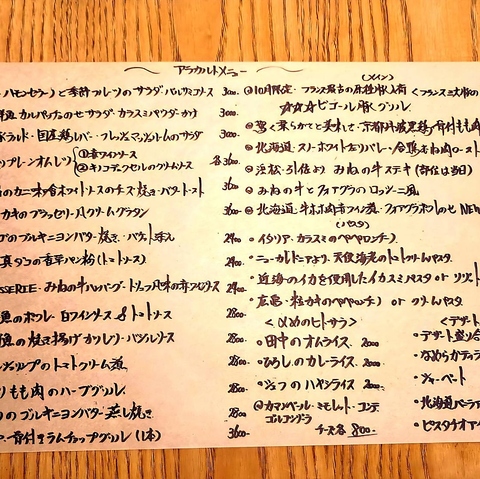 アラカルトメニュー
ハモンセラー)と季節フルーツのサラダ・バルサミコソース 3000-
カルパッチョのせサラダ・カラスミパウダーかけ 3000-
国産鶏レバー・フレッシュマッシュルームのサラダ 3000-
プレーンオムレツ ①赤ワインソース
②キノコデュクセルのクリームソース 各3600
カニ味香ホワイトソースのチーズ焼き・バタートースト 3600
カキのブラッセリー風クリームグラタン 3600-
ブルギニヨンバター焼き・バゲット添え 2400
真ダコの香草パン粉(トマトソース) 2400-
SSERIE・みねの牛ハンバーグ・トリュフ風味の赤ワインソース 2400-
魚のポワレ・白ワインソース & トマトソース 2800-
魚の焼き揚げカリッソリ・バジルソース 2800-
のトマトクリーム煮 2800-
もも肉のハーブグリル 2800
ブルギニヨンバター蒸し焼き 2800
骨付きラムチョップグリル(1本) 3600-
(メイン)
◎10月限定・フランス最古の原種豚入荷 <フランス三大豚の
☆☆☆ビゴール豚グリル
◎驚く柔らかさと美味しさ・京都丹波黒鶏骨付もも肉
◎北海道・スノーホワイトチャリバレー・合鴨むね肉ロースト
◎浜松・引佐より みねの牛ステキ(部位は当日)
◎みねの牛とフォアグラのロッシーニ風
◎北海道牛ホホ肉赤ワイン煮・フォアグラポワレのせ NEW
(パスタ)
・イタリア・カラスミのペペロンチーノ
・ニューカレドニアより、天使海老のトマトクリームパスタ
・近海のイカを使用したイカスミパスタ or リゾット
・広島・粒カキのペペロンチーノ or クリームパスタ
<〆のヒトサラ>
・田中のオムライス 2000
・ひろしのカレーライス 2000-
・シェフのハヤシライス 2000-
◎カマンベール・ミモレット・コンテ
ゴルゴンゾーラ
チーズ各 800-
<デザート
・デザート盛り合
・なめらかテッラ
・シャーベット
・北海道バニラア
・ピスタチオア